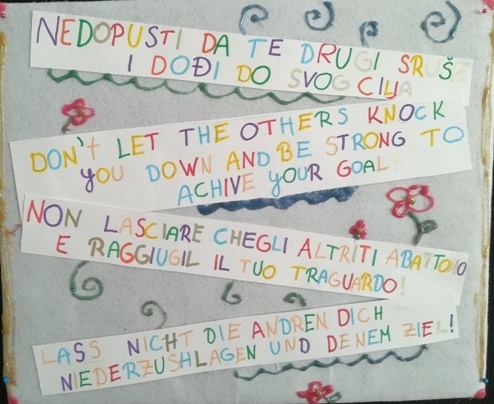 NEDOPUSTI DA TE DRUGI SRUŠE
I DOĐI DO SVOG CILJA
DON't LET THE OTHERS KNOCK
yOU DOWN AND BE STRONG TO
ACHIVE yOUR GOAL!
NON LASCIARE CHEGLI ALTRITI ABATTONO
E RAGGIUGIL IL TUO TRAGUARDO!
LASS NICHT DIE ANDREN DICH
NIEDERZUSHLAGEN UND DENEM ZIEL!